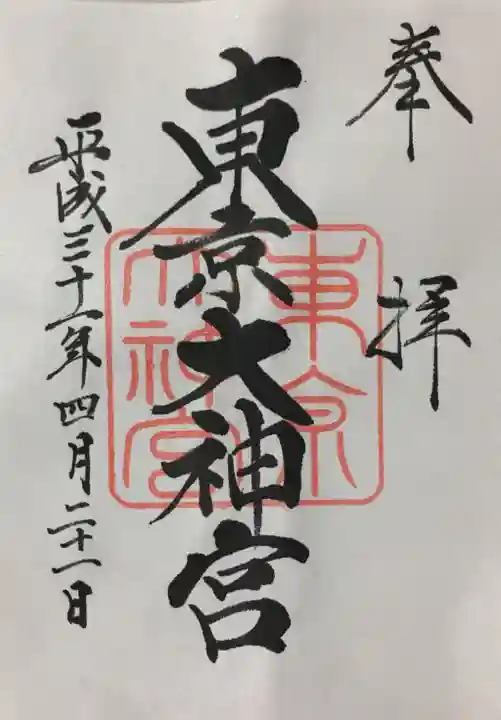 奉拝
東京大神宮
東京大神宮
平成三十一年四月二十一日